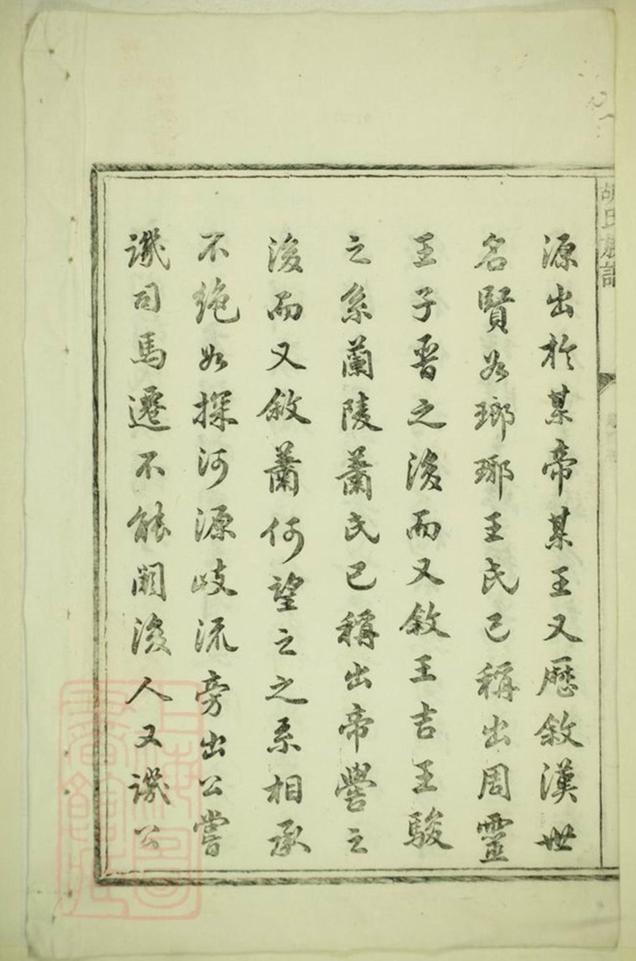 胡氏族譜
源出於某帝某王又歷敘漢世
名賢如瑯琊王氏已稱出周靈
王子晉之後而又敘王吉王駿
之系蘭陵蕭氏已稱出帝嚳之
後而又敘蕭何望之之系相承
不絕如探河源岐流旁出公嘗
譏司馬遷不能闕後人又譏公